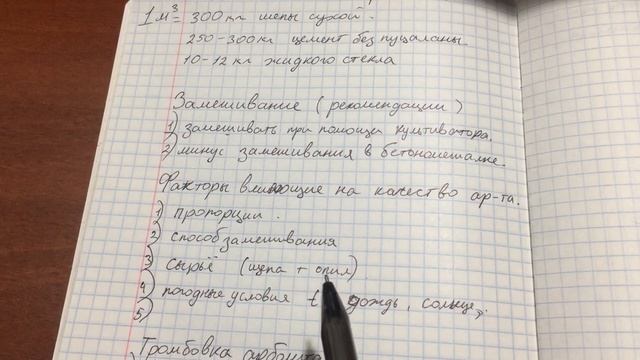 1м³ = 300 кг щепы сухой.
250-300кг цемент без пуцаланы
10-12 кг жидкого стекла
Замешивание (рекомендации)
1) замешивать при помощи культиватора.
2) минус замешивания в бетономешалке.
Факторы влияющие на качество ар-та.
1) пропорции.
2) способ замешивания
3) сырьё (щепа + опил)
4) погодные условия t дождь, солнце,
5)
Тромбовка арболита